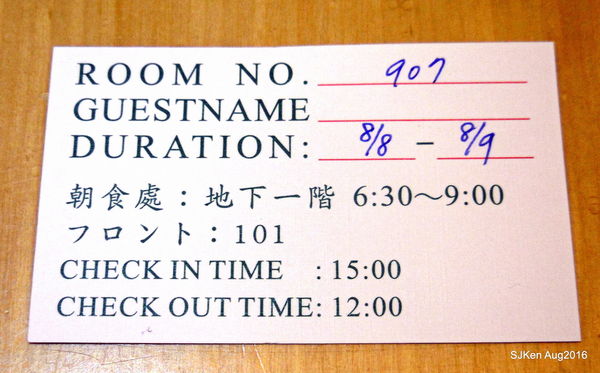 ROOM NO. 907
GUESTNAME
DURATION: 8/8 - 8/9
朝食處：地下一階 6:30～9:00
フロント：101
CHECK IN TIME : 15:00
CHECK OUT TIME: 12:00
SJKen Aug2016